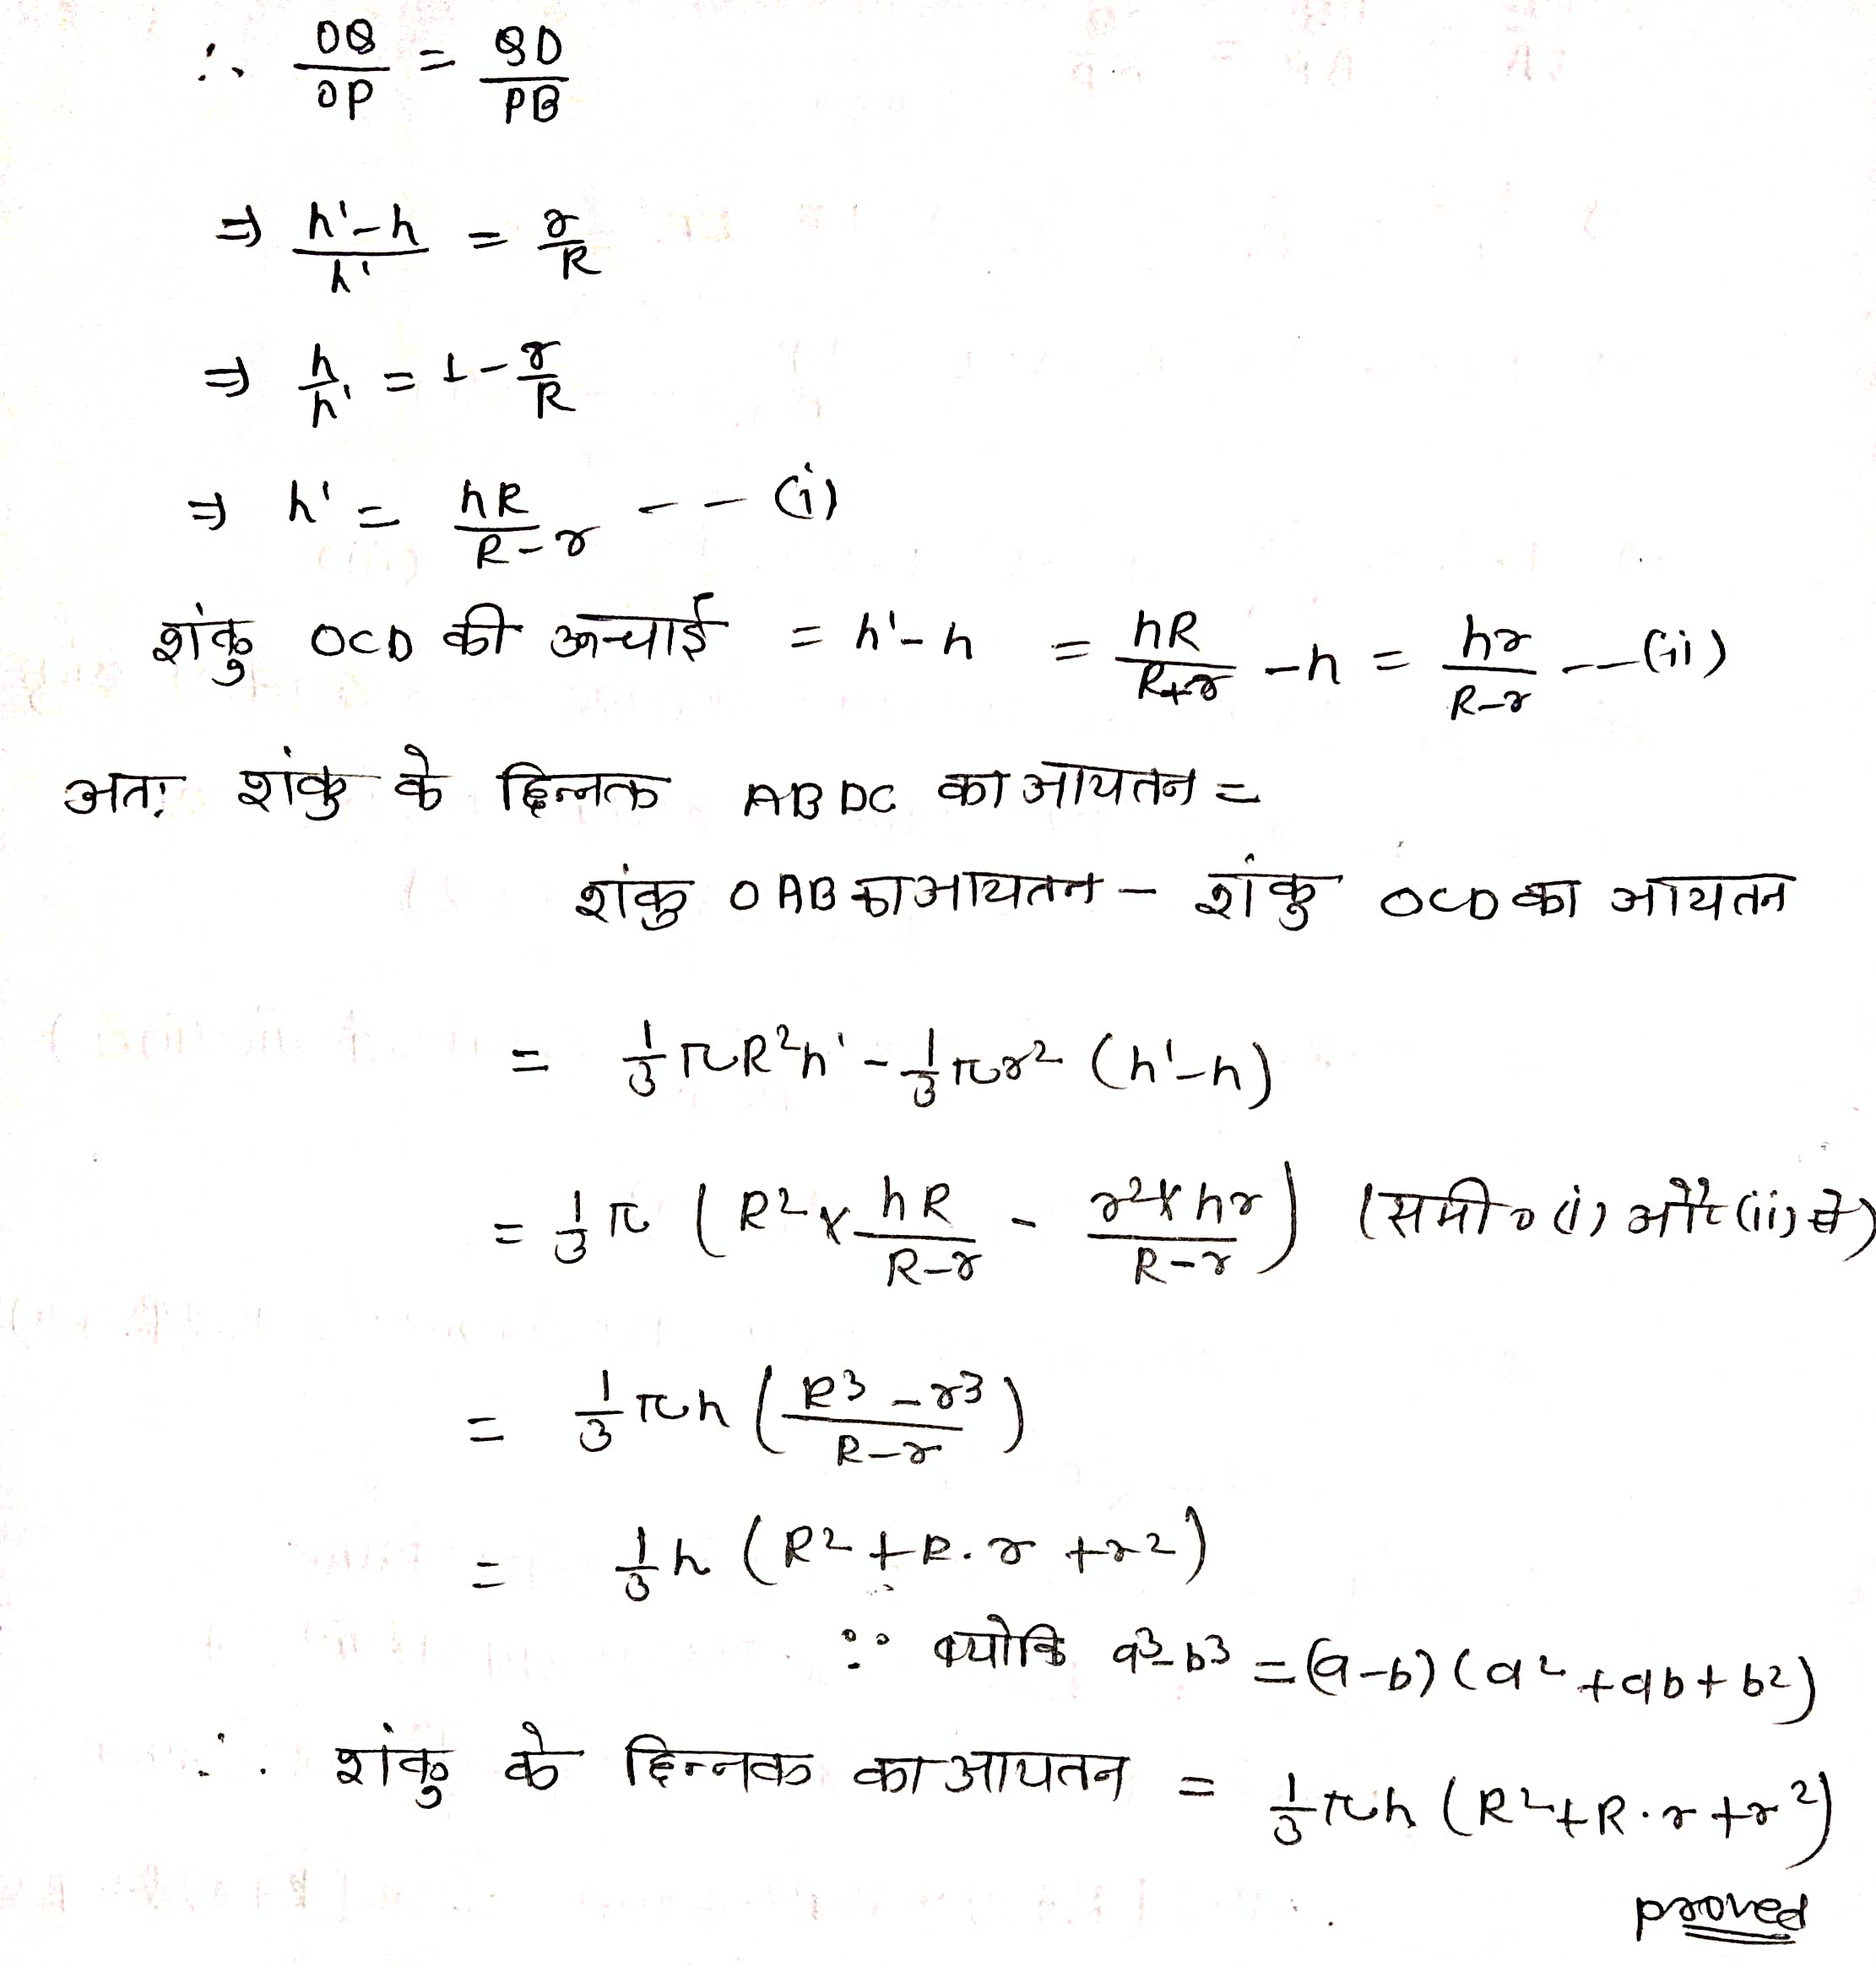 ∴ OQ/OP = QD/PB
⇒ h'-h/h' = r/R
⇒ h/h' = 1-r/R
⇒ h' = hR/R-r -- (i)
शंकु OCD की ऊन्चाई = h'-h = hR/R+r -h = hr/R-r --(ii)
अतः शंकु के छिन्नक ABDC का आयतन =
शंकु OAB का आयतन - शंकु OCD का आयतन
= 1/3 πR²h' - 1/3 πr² (h'-h)
= 1/3 π (R² x hR/R-r - r² x hr/R-r) (समी० (i) और (ii) से)
= 1/3 πh (R³-r³/R-r)
= 1/3 h (R²+R.r+r²)
∵ क्योकि a³-b³ = (a-b) (a²+ab+b²)
∴ शंकु के छिन्नक का आयतन = 1/3 πh (R²+R.r+r²)
proved